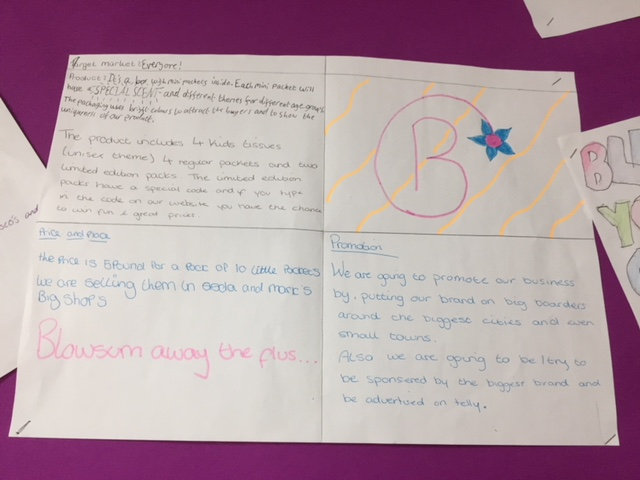 Target market: Everyone!
Product: It's a box with mini packets inside. Each mini packet will
have a SPECIAL SCENT and different themes for different age groups.
The packaging uses bright colours to attract the buyers and to show the
uniqueness of our product.
The product includes 4 kids tissues
(unisex theme) 4 regular packets and two
limited edition packs. The limited edition
packs have a special code and if you type
in the code on our website you have the chance
to win fun & great prizes
B
Price and Place
the Price is 5 Pound for a Pack of 10 little Packets
we are selling them in and mark 5
Big shops
Blowsum away the flus...
Promotion
We are going to promote our business
by. putting our brand on big boarders
around the biggest cities and even
small towns.
Also we are going to be/try to
be sponsered by the biggest brand and
be advertised on telly.
and
BL
YO